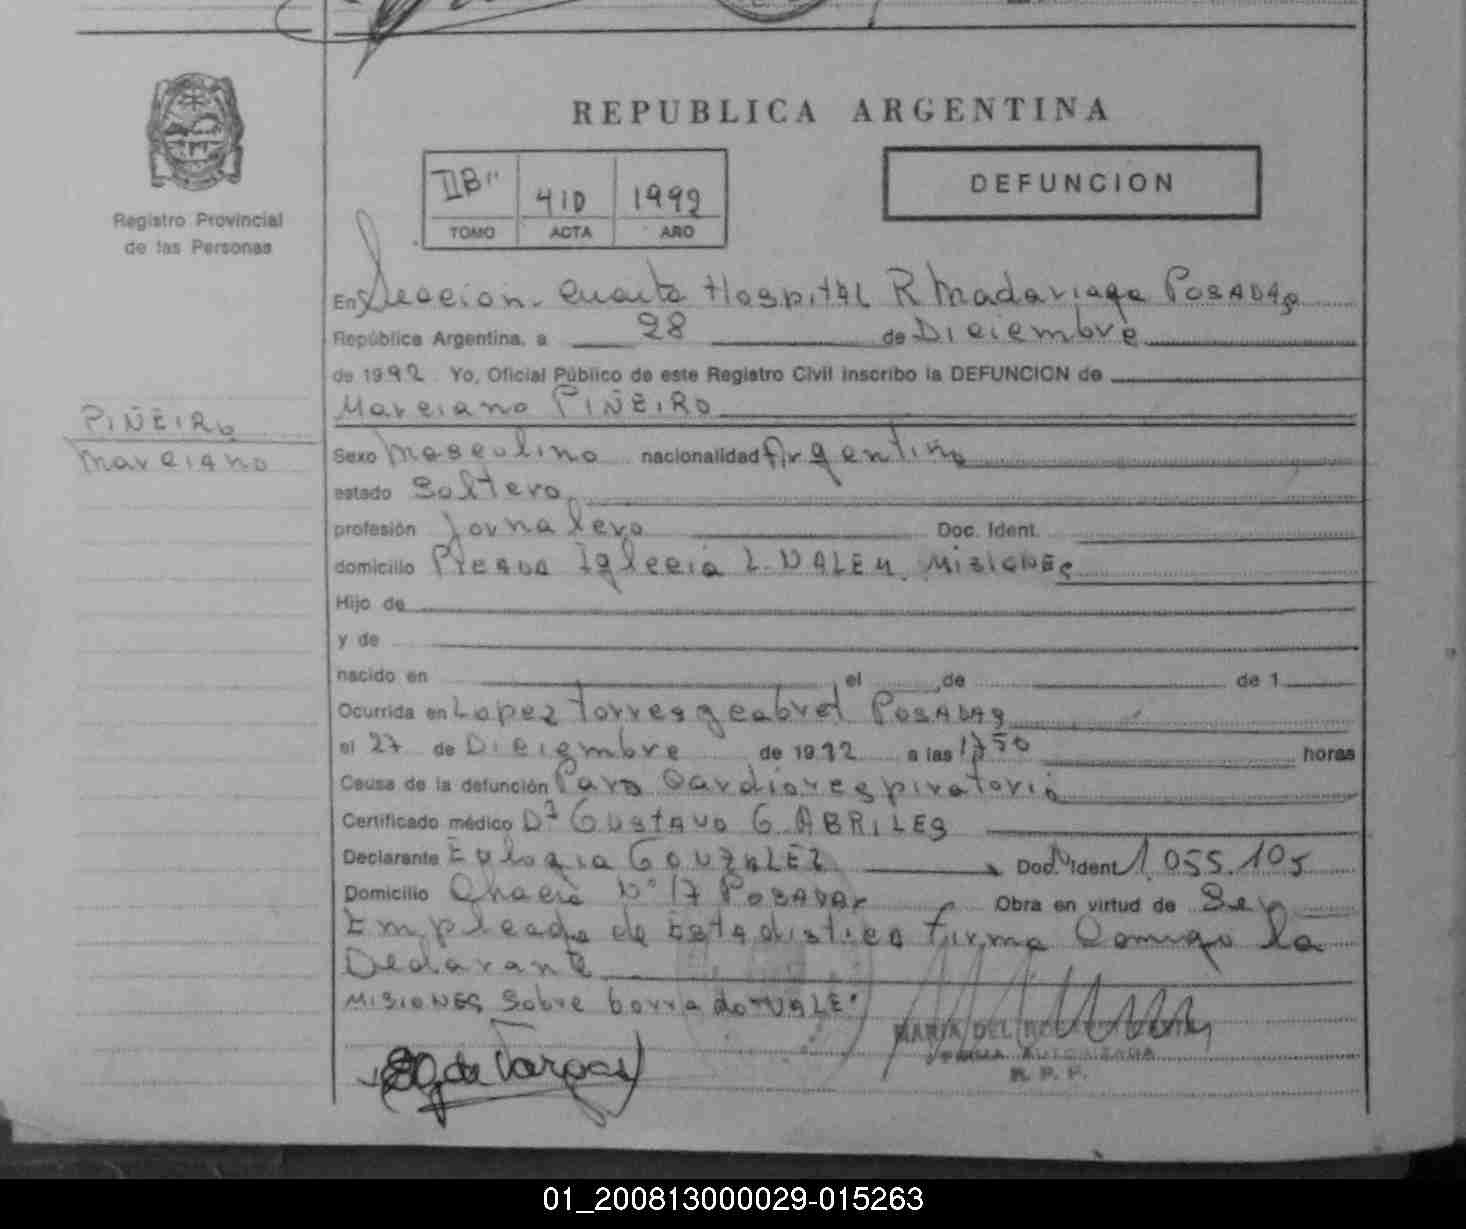 REPUBLICA ARGENTINA
Registro Provincial
de las Personas
II B" 410 1992
TOMO ACTA AÑO
DEFUNCION
En Seccion Cuarta Hospital R Madariaga POSADAS
República Argentina, a 28 de Diciembre
de 1992 Yo, Oficial Público de este Registro Civil inscribo la DEFUNCION de
Marciano PIÑEIRO
PIÑEIRO
Marciano
Sexo Masculino nacionalidad Argentino
estado Soltero
profesión Jornalero Doc. Ident.
domicilio Iglecia L.N.ALEM MISIONES
Hijo de
y de
nacido en el de de 1
Ocurrida en Lopez Torres y Cabret POSADAS
el 27 de Diciembre de 1992 a las 1750 horas
Causa de la defunción Paro Cardiorespiratorio
Certificado médico Dr Gustavo G. ABRILES
Declarante Eulogia GONZALEZ Doc. Ident 1.055.105
Domicilio Chacra N° 17 POSADAS Obra en virtud de Ser
Empleada de Estadistica firma Comigo la
Declarante
MISIONES Sobre borrado-VALE.
G. de Vargas
MARIA DEL
FIRMA AUTORIZADA
R. P. P.
01_200813000029-015263